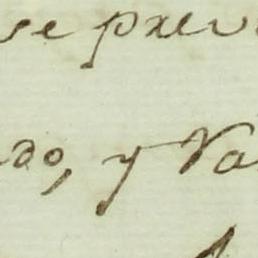 se prev
do, y Va